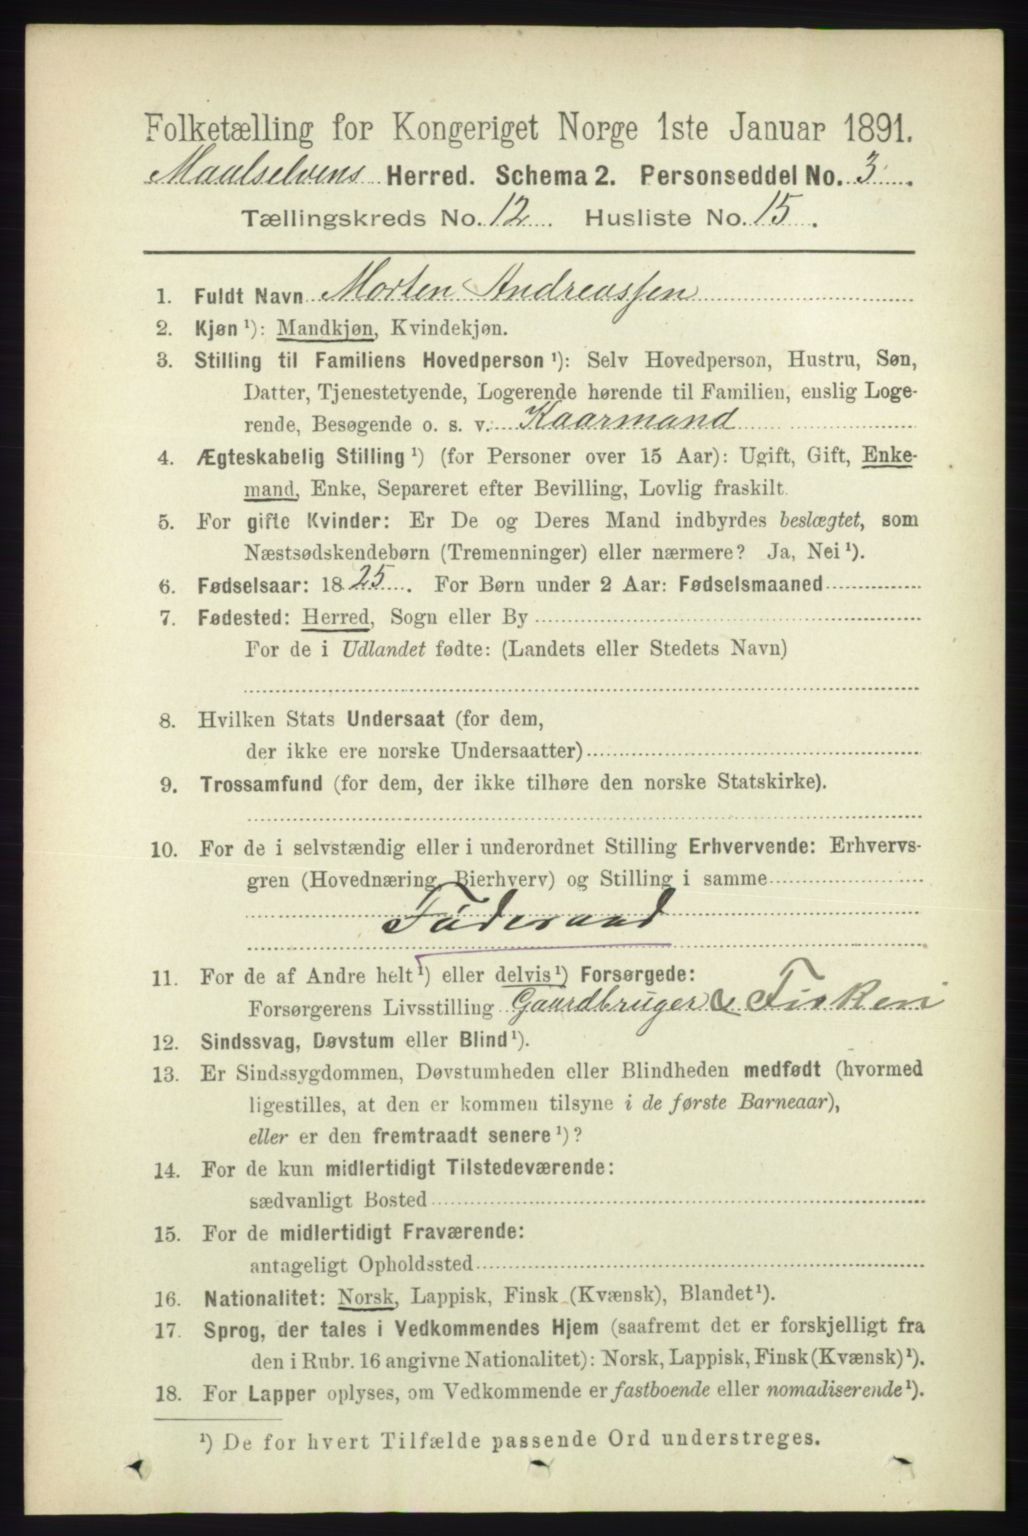 Folketælling for Kongeriget Norge 1ste Januar 1891.
Maalselvens Herred. Schema 2. Personseddel No. 3.
Tællingskreds No. 12. Husliste No. 15.
1. Fuldt Navn Morten Andreassen
2. Kjøn ¹): Mandkjøn, Kvindekjøn.
3. Stilling til Familiens Hovedperson ¹): Selv Hovedperson, Hustru, Søn,
Datter, Tjenestetyende, Logerende hørende til Familien, enslig Loge-
rende, Besøgende o. s. v. Kaarmand
4. Ægteskabelig Stilling ¹) (for Personer over 15 Aar): Ugift, Gift, Enke-
mand, Enke, Separeret efter Bevilling, Lovlig fraskilt.
5. For gifte Kvinder: Er De og Deres Mand indbyrdes beslægtet, som
Næstsødskendebørn (Tremenninger) eller nærmere? Ja, Nei ¹).
6. Fødselsaar: 1825. For Børn under 2 Aar: Fødselsmaaned
7. Fødested: Herred, Sogn eller By
For de i Udlandet fødte: (Landets eller Stedets Navn)
8. Hvilken Stats Undersaat (for dem,
der ikke ere norske Undersaatter)
9. Trossamfund (for dem, der ikke tilhøre den norske Statskirke).
10. For de i selvstændig eller i underordnet Stilling Erhvervende: Erhvervs-
gren (Hovednæring, Bierhverv) og Stilling i samme
Føderaad
11. For de af Andre helt ¹) eller delvis ¹) Forsørgede:
Forsørgerens Livsstilling Gaardbruger & Fiskeri
12. Sindssvag, Døvstum eller Blind ¹).
13. Er Sindssygdommen, Døvstumheden eller Blindheden medfødt (hvormed
ligestilles, at den er kommen tilsyne i de første Barneaar),
eller er den fremtraadt senere ¹)?
14. For de kun midlertidigt Tilstedeværende:
sædvanligt Bosted
15. For de midlertidigt Fraværende:
antageligt Opholdssted
16. Nationalitet: Norsk, Lappisk, Finsk (Kvænsk), Blandet ¹).
17. Sprog, der tales i Vedkommendes Hjem (saafremt det er forskjelligt fra
den i Rubr. 16 angivne Nationalitet): Norsk, Lappisk, Finsk (Kvænsk) ¹).
18. For Lapper oplyses, om Vedkommende er fastboende eller nomadiserende ¹).
¹) De for hvert Tilfælde passende Ord understreges.